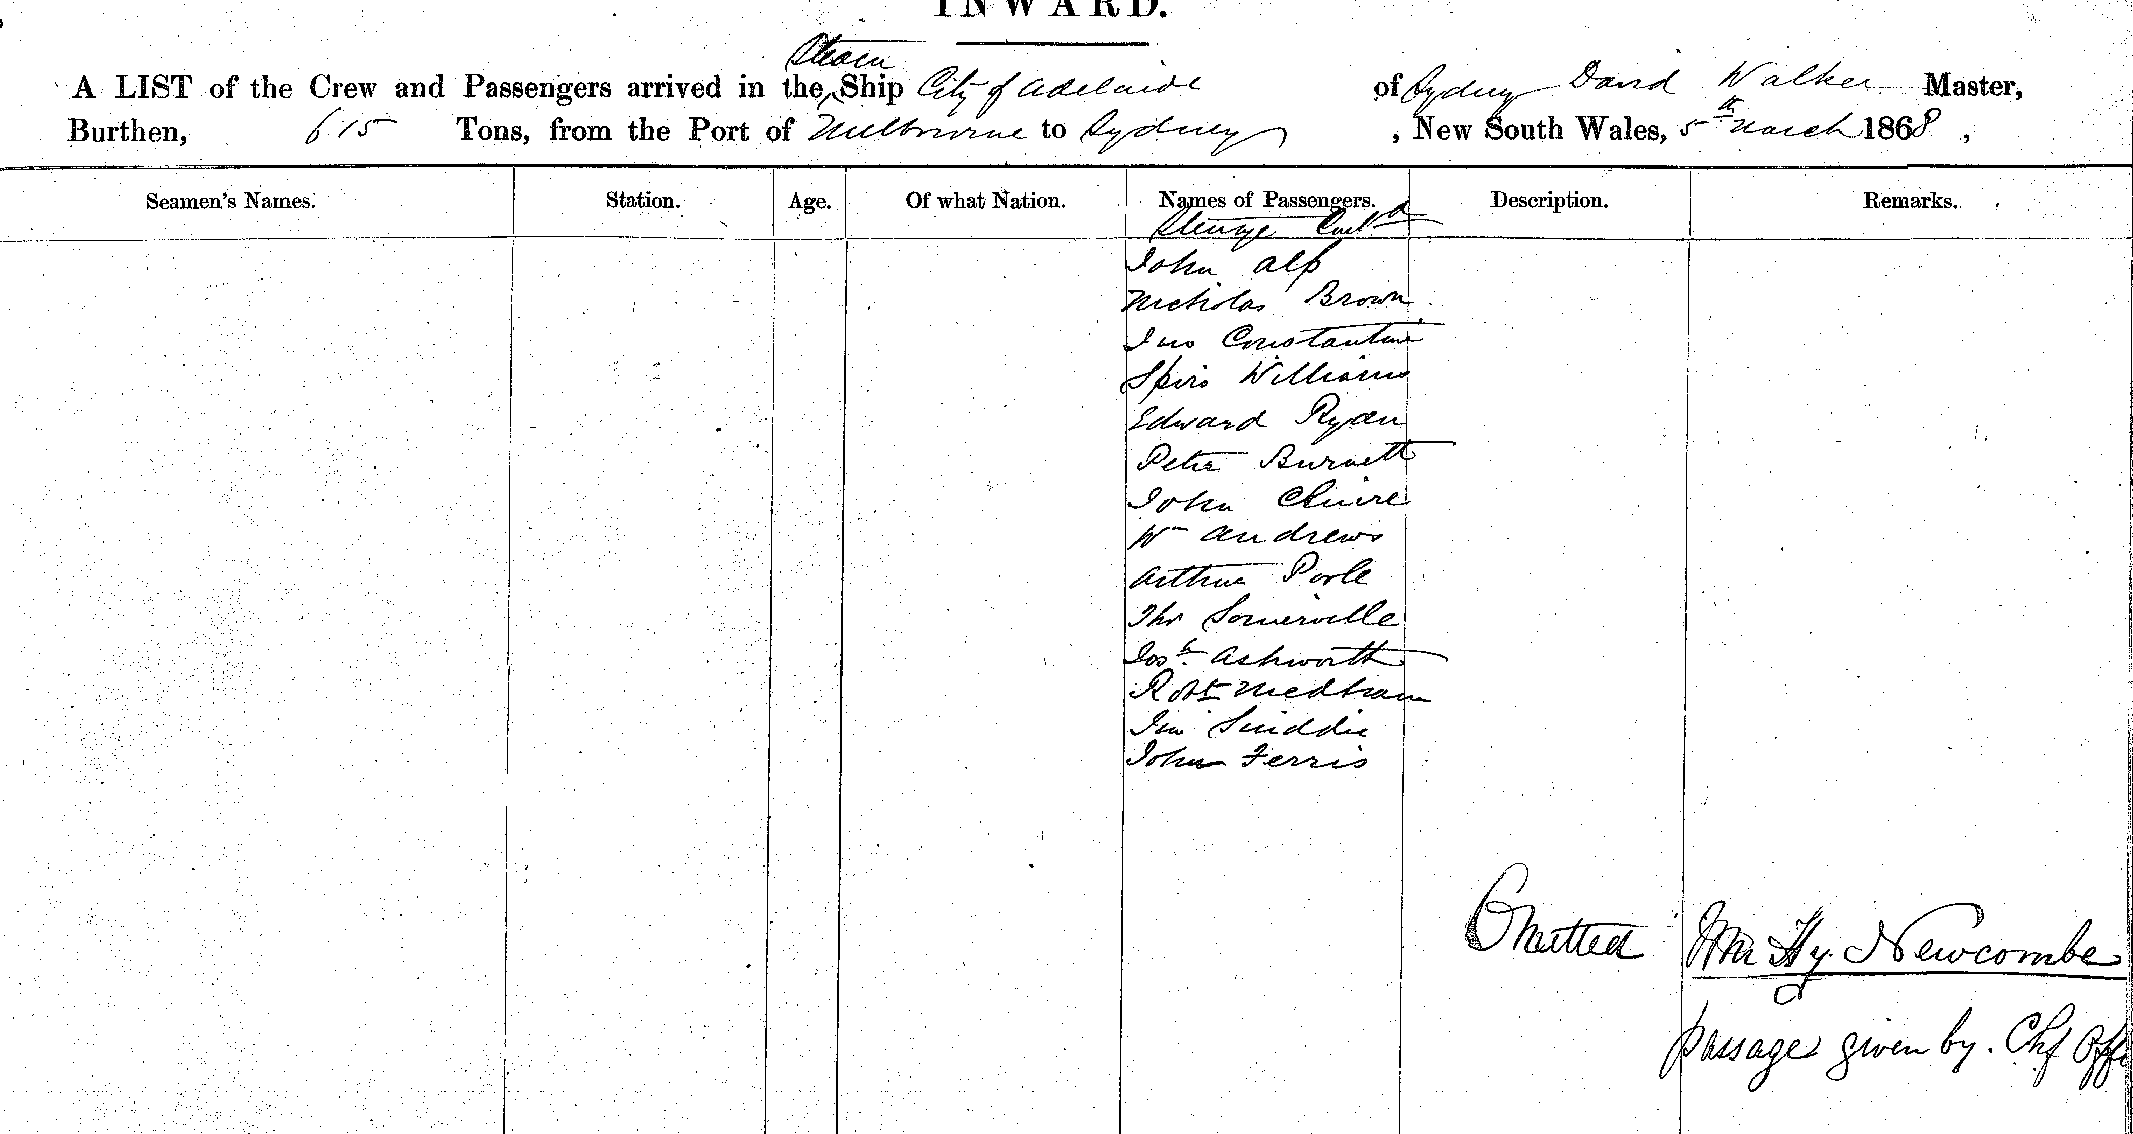 INWARD.
Steam
A LIST of the Crew and Passengers arrived in the Ship City of Adelaide of Sydney David Walker Master,
Burthen, 615 Tons, from the Port of Melbourne to Sydney, New South Wales, 5th March 1868,
Seamen's Names. Station. Age. Of what Nation. Names of Passengers. Description. Remarks.
Steerage Contd
John Alp
Nicholas Brown
Jno Constantine
Spiro Williams
Edward Ryan
Peter Burnett
John
Wm Andrews
Arthur Poole
Thos Somerville
Josh Ashworth
Robt Medham
Jno
John Ferris
Omitted Mr Hy. Newcombe
passage given by. Chf Offi